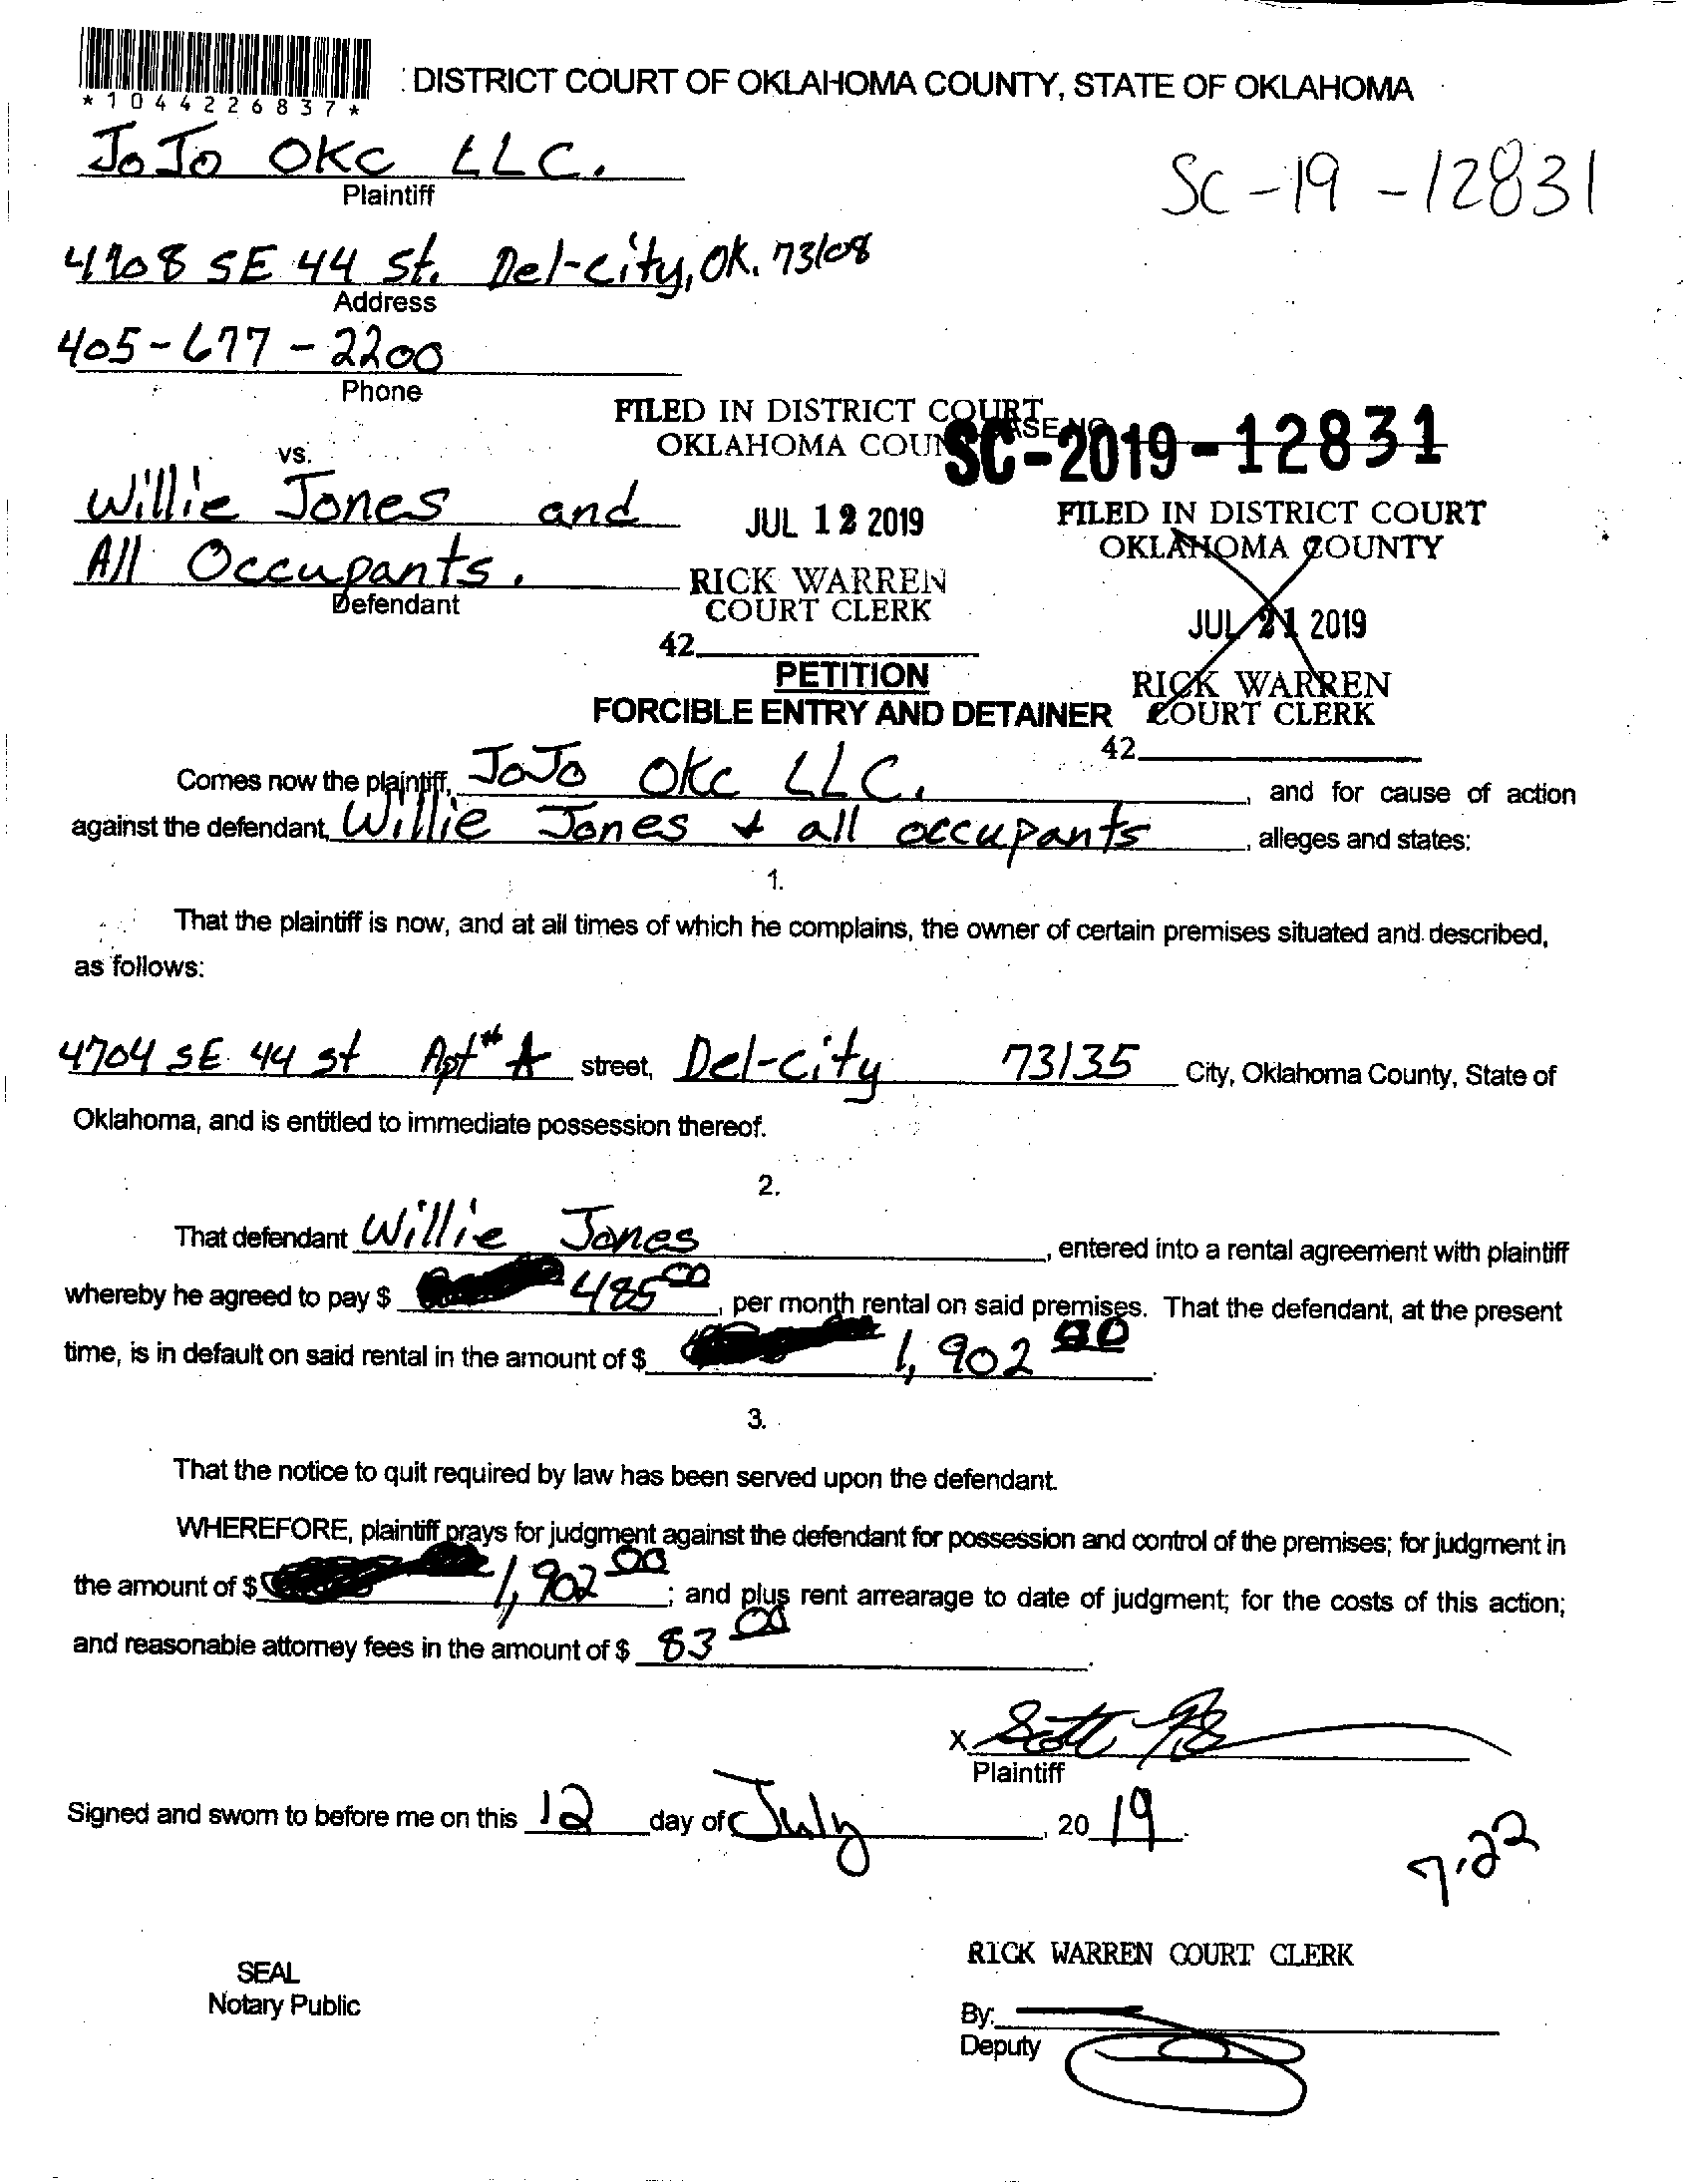 : DISTRICT COURT OF OKLAHOMA COUNTY, STATE OF OKLAHOMA
*1044226837*
JoJo OKC LLC.
Plaintiff
SC-19-12831
4908 SE 44 St. Del-City, OK. 73108
Address
405-677-2200
Phone
FILED IN DISTRICT COURT
OKLAHOMA COUN
SC-2019-12831
vs.
Willie Jones and
All Occupants.
Defendant
JUL 12 2019
RICK WARREN
COURT CLERK
42
FILED IN DISTRICT COURT
OKLAHOMA COUNTY
JUL 21 2019
RICK WARREN
COURT CLERK
42
PETITION
FORCIBLE ENTRY AND DETAINER
Comes now the plaintiff, JoJo OKC LLC., and for cause of action
against the defendant, Willie Jones + all occupants, alleges and states:
1.
That the plaintiff is now, and at all times of which he complains, the owner of certain premises situated and described,
as follows:
4704 SE 44 st Apt # A street, Del-city 73135 City, Oklahoma County, State of
Oklahoma, and is entitled to immediate possession thereof.
2.
That defendant Willie Jones, entered into a rental agreement with plaintiff
whereby he agreed to pay $ 485 00, per month rental on said premises. That the defendant, at the present
time, is in default on said rental in the amount of $ 1,902 00.
3.
That the notice to quit required by law has been served upon the defendant.
WHEREFORE, plaintiff prays for judgment against the defendant for possession and control of the premises; for judgment in
the amount of $ 1,902 00; and plus rent arrearage to date of judgment; for the costs of this action;
and reasonable attorney fees in the amount of $ 83 00.
X
Plaintiff
Signed and sworn to before me on this 12 day of July, 20 19.
7.22
RICK WARREN COURT CLERK
SEAL
Notary Public
By:
Deputy